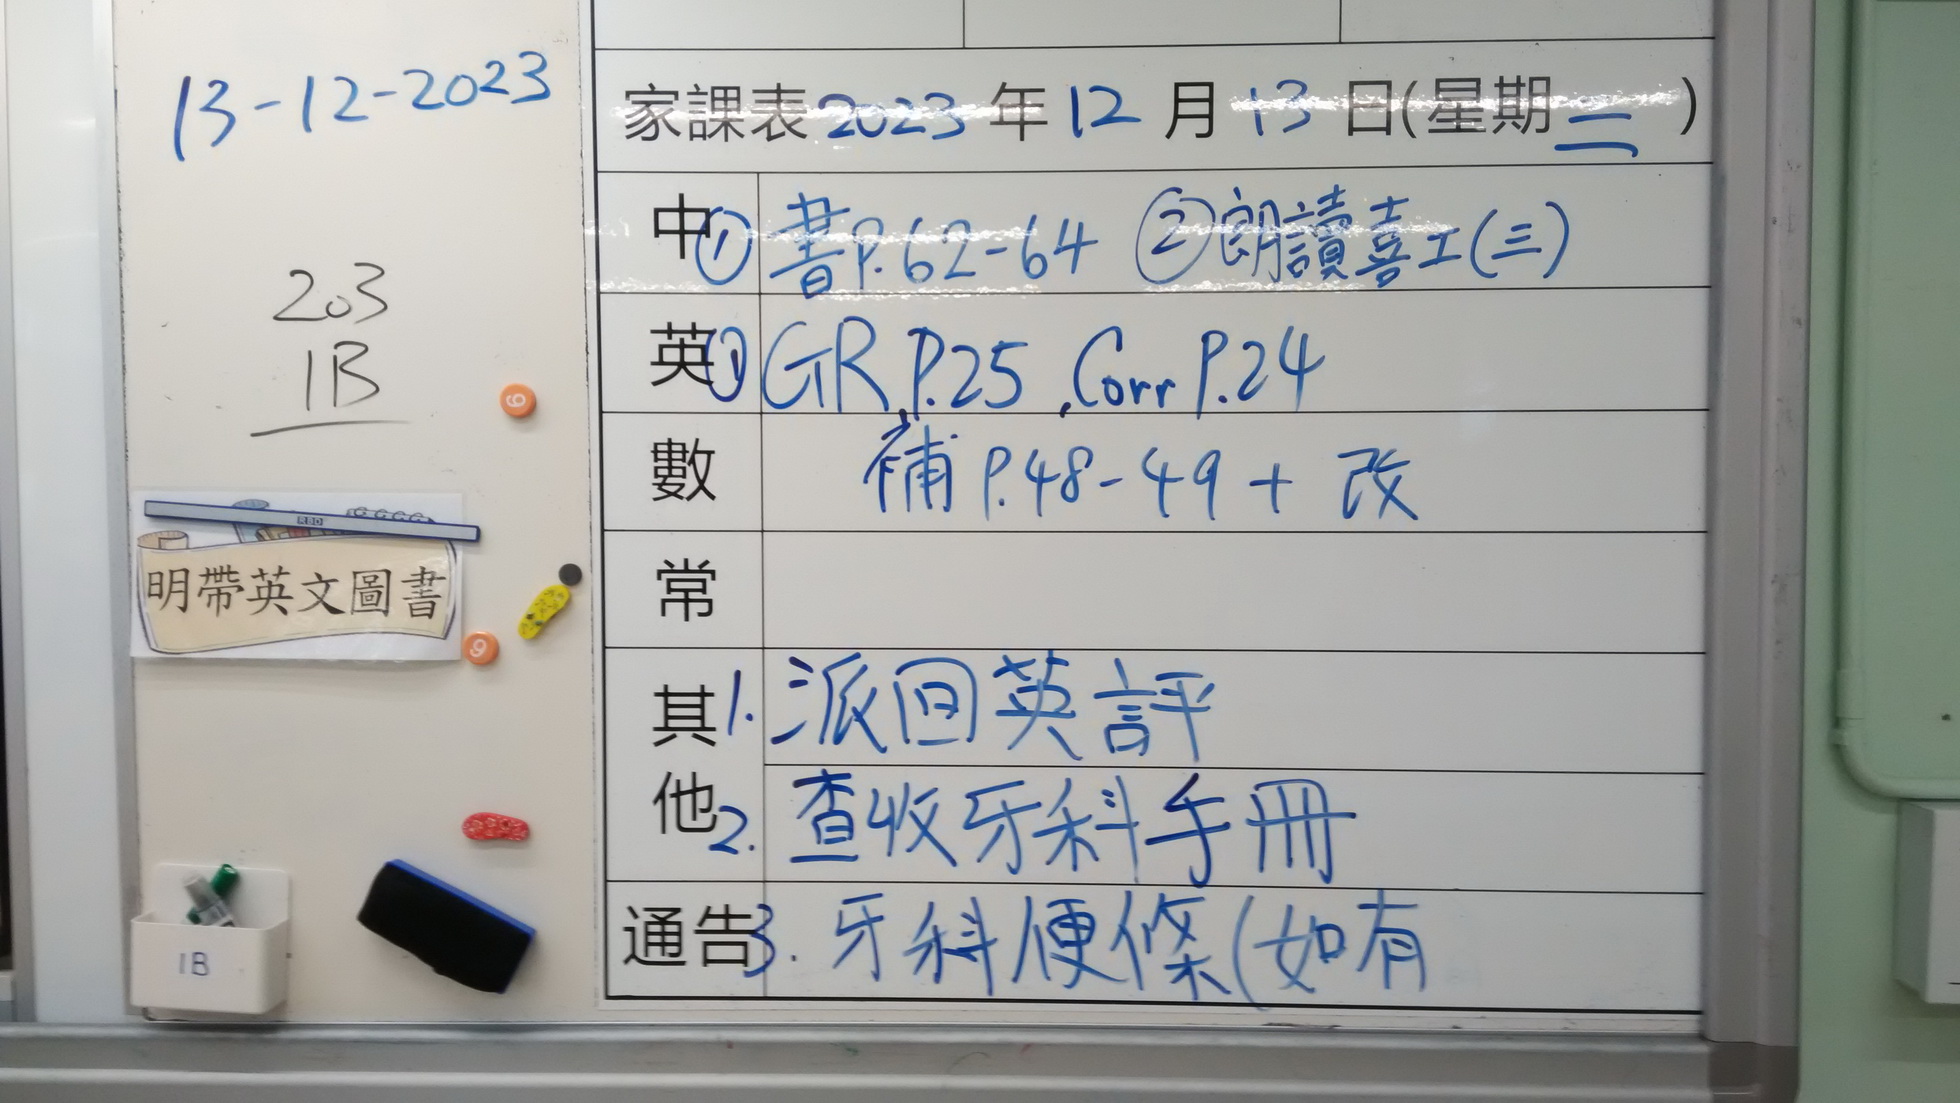 13-12-2023
203
1B
RBD
明帶英文圖書
6
9
1B
家課表 2023 年 12 月 13 日(星期三)
中 ① 書P.62-64 ②朗讀喜工(三)
英 ① GR P.25, Corr P.24
數 補 P.48-49 + 改
常
其他 1. 派回英評
2. 查收牙科手冊
通告 3. 牙科便條(如有